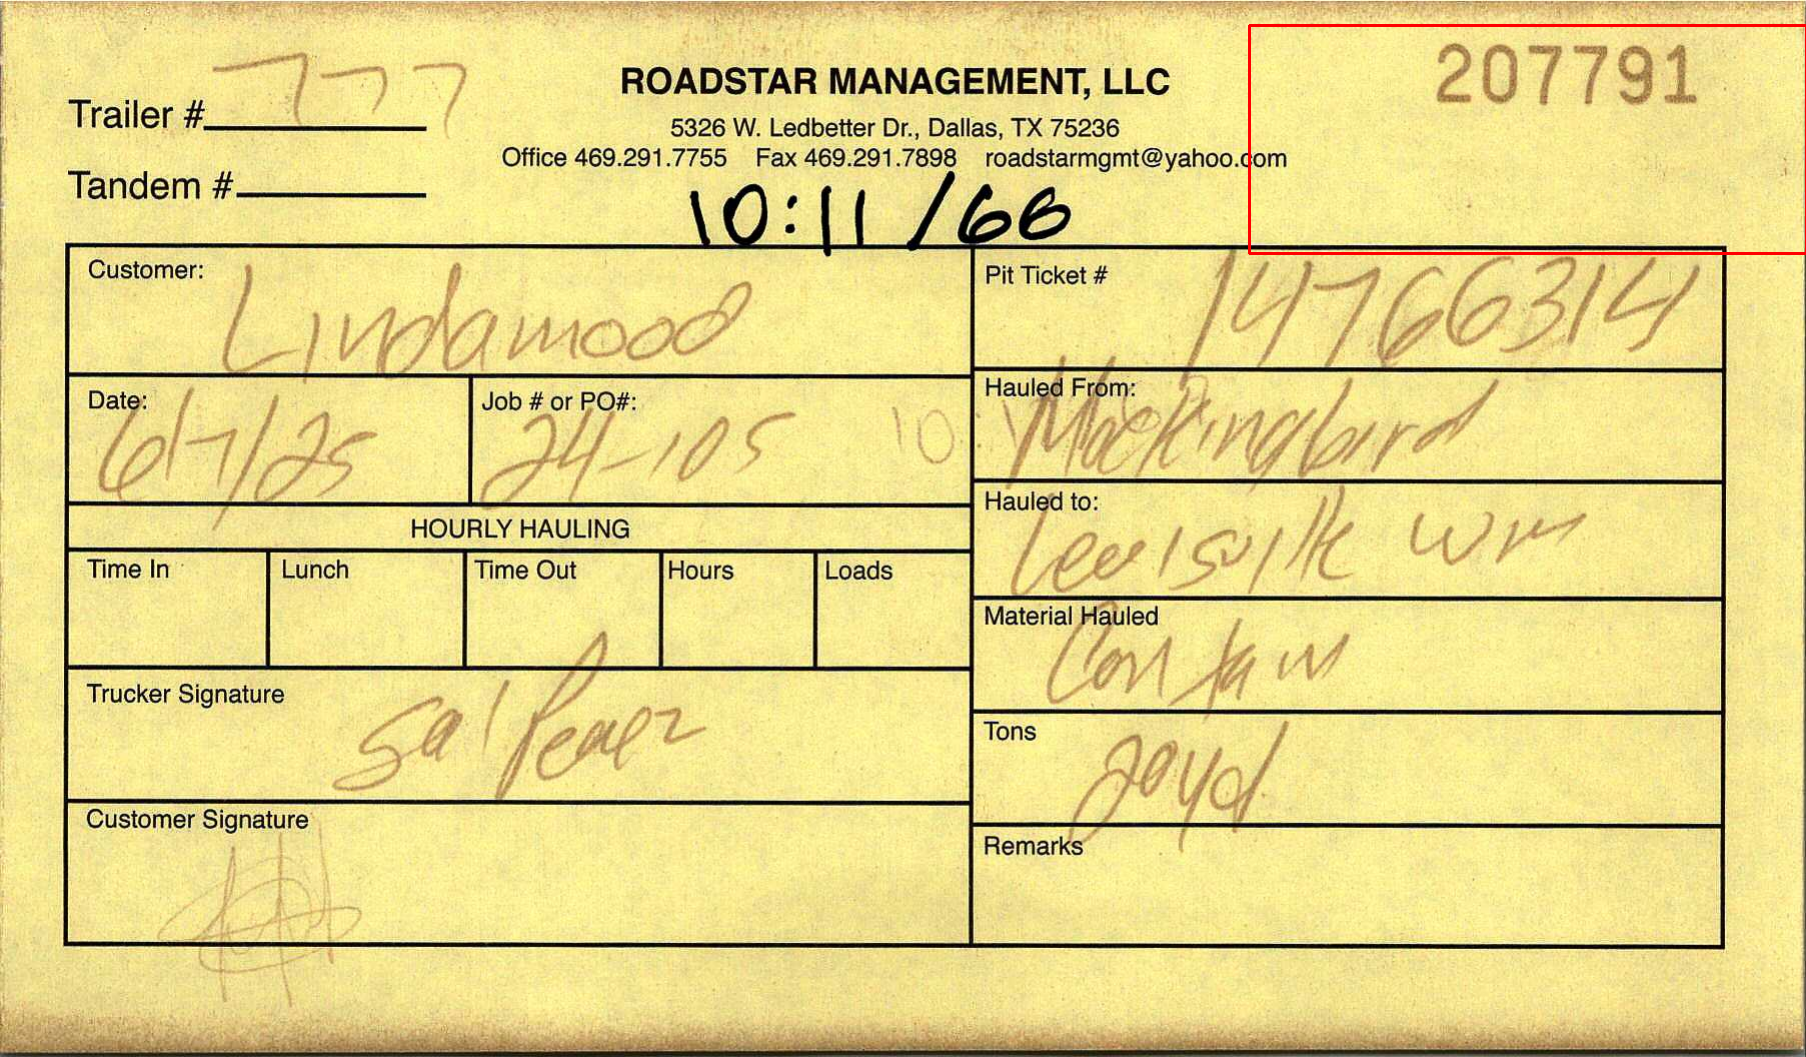 207791
Trailer # 777
ROADSTAR MANAGEMENT, LLC
5326 W. Ledbetter Dr., Dallas, TX 75236
Office 469.291.7755 Fax 469.291.7898 roadstarmgmt@yahoo.com
Tandem #
10:11 /66
Customer: Lindamood
Pit Ticket # 14766314
Date: 6/7/25
Job # or PO#: 24-105
Hauled From: Mockingbird
Hauled to: Lewisville WM
HOURLY HAULING
Time In Lunch Time Out Hours Loads
Material Hauled
Trucker Signature Sal Perez
Tons 20yd
Customer Signature
Remarks